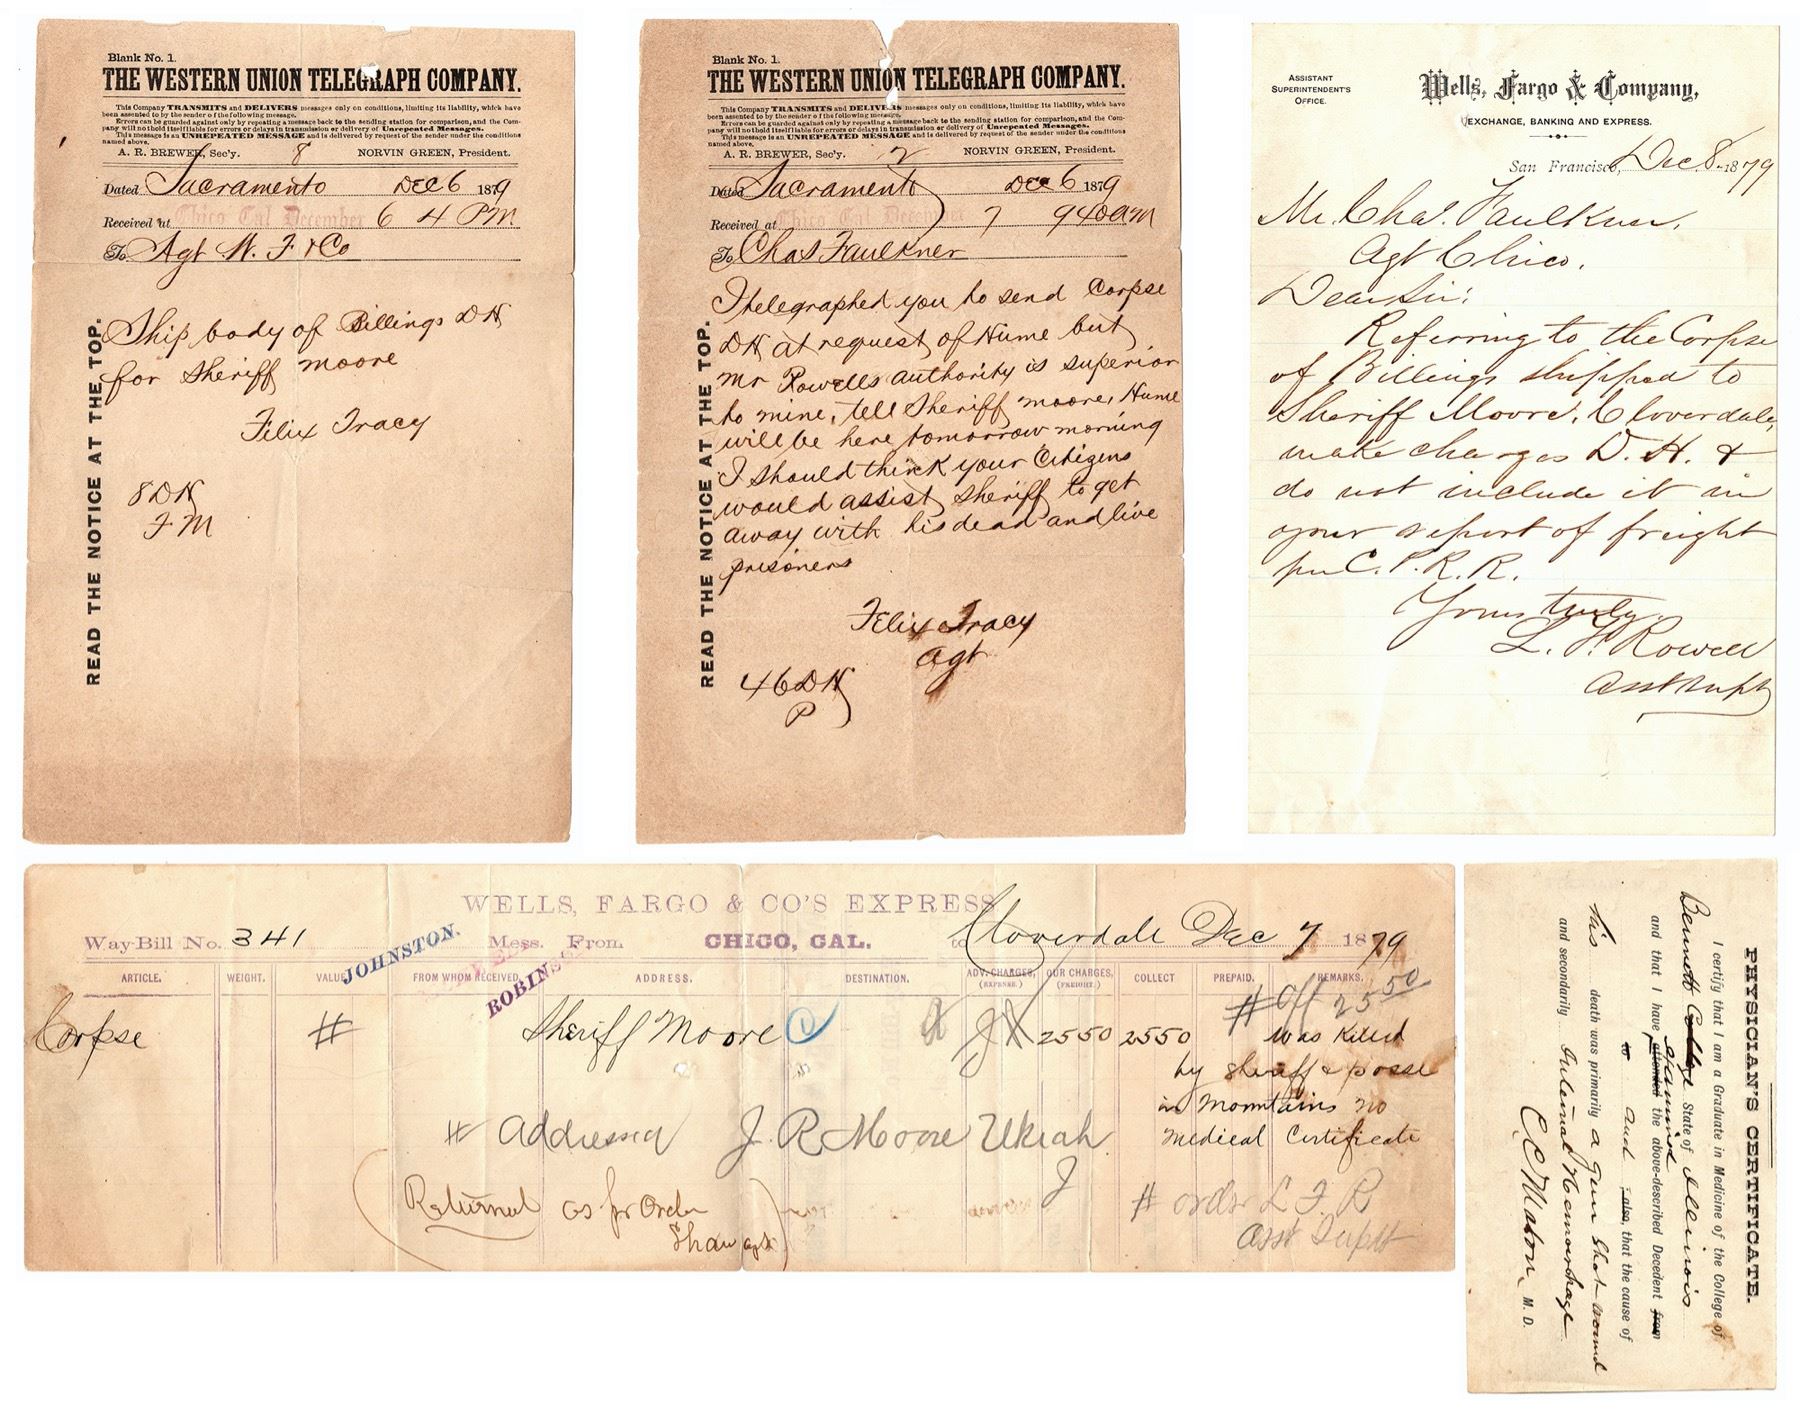 Blank No. 1.
THE WESTERN UNION TELEGRAPH COMPANY.
This Company TRANSMITS and DELIVERS messages only on conditions, limiting its liability, which have
been assented to by the sender of the following message.
Errors can be guarded against only by repeating a message back to the sending station for comparison, and the Com-
pany will not hold itself liable for errors or delays in transmission or delivery of Unrepeated Messages.
This message is an UNREPEATED MESSAGE and is delivered by request of the sender under the conditions
named above.
A. R. BREWER, Sec'y. 8 NORVIN GREEN, President.
Dated Sacramento Dec 6 1879
Received at Chico Cal December 6 4 PM
To Agt W. F & Co
READ THE NOTICE AT THE TOP.
Ship body of Billings DH
for Sheriff Moore
Felix Tracy
8 DH
FM
Blank No. 1.
THE WESTERN UNION TELEGRAPH COMPANY.
This Company TRANSMITS and DELIVERS messages only on conditions, limiting its liability, which have
been assented to by the sender of the following message.
Errors can be guarded against only by repeating a message back to the sending station for comparison, and the Com-
pany will not hold itself liable for errors or delays in transmission or delivery of Unrepeated Messages.
This message is an UNREPEATED MESSAGE and is delivered by request of the sender under the conditions
named above.
A. R. BREWER, Sec'y. 2 NORVIN GREEN, President.
Dated Sacramento Dec 6 1879
Received at Chico Cal December 7 940am
To Chas Faulkner
READ THE NOTICE AT THE TOP.
I telegraphed you to send Corpse
DH at request of Hume but
Mr Rowells authority is superior
to mine, tell Sheriff moore, Hume
will be here tomorrow morning
I should think your Citizens
would assist Sheriff to get
away with his dead and live
prisoners
Felix Tracy
Agt
46 DH
P
ASSISTANT
SUPERINTENDENT'S
OFFICE.
Wells, Fargo & Company,
EXCHANGE, BANKING AND EXPRESS.
San Francisco, Dec 8 1879
Mr. Chas. Faulkner,
Agt Chico.
Dear Sir:
Referring to the Corpse
of Billings shipped to
Sheriff Moore, Cloverdale,
make charges D. H. &
do not include it in
your report of freight
per C. P. R. R.
Yours truly,
L. F. Rowell
Asst Supt
WELLS, FARGO & CO'S EXPRESS
Way-Bill No. 341 JOHNSTON. Mess. From CHICO, CAL. to Cloverdale Dec 7 1879
ROBINSON
ARTICLE. WEIGHT. VALUE FROM WHOM RECEIVED ADDRESS. DESTINATION. ADV. CHARGES, (EXPENSE.) OUR CHARGES. (FREIGHT.) COLLECT PREPAID. REMARKS.
# Off 25 50
Corpse # Sheriff Moore 2550 2550 was killed
by sheriff & posse
in mountains no
medical Certificate
# Addressed J R Moore Ukiah
Returned as pr Order
Shaw agt
# order L F R
Asst Supt
PHYSICIAN'S CERTIFICATE.
I certify that I am a Graduate in Medicine of the College of
Bennett College State of Illinois
examined
and that I have attended the above-described Decedent from
to and also, that the cause of
his death was primarily a Gun Shot wound
and secondarily Internal Hemorrhage
C C Mason, M. D.